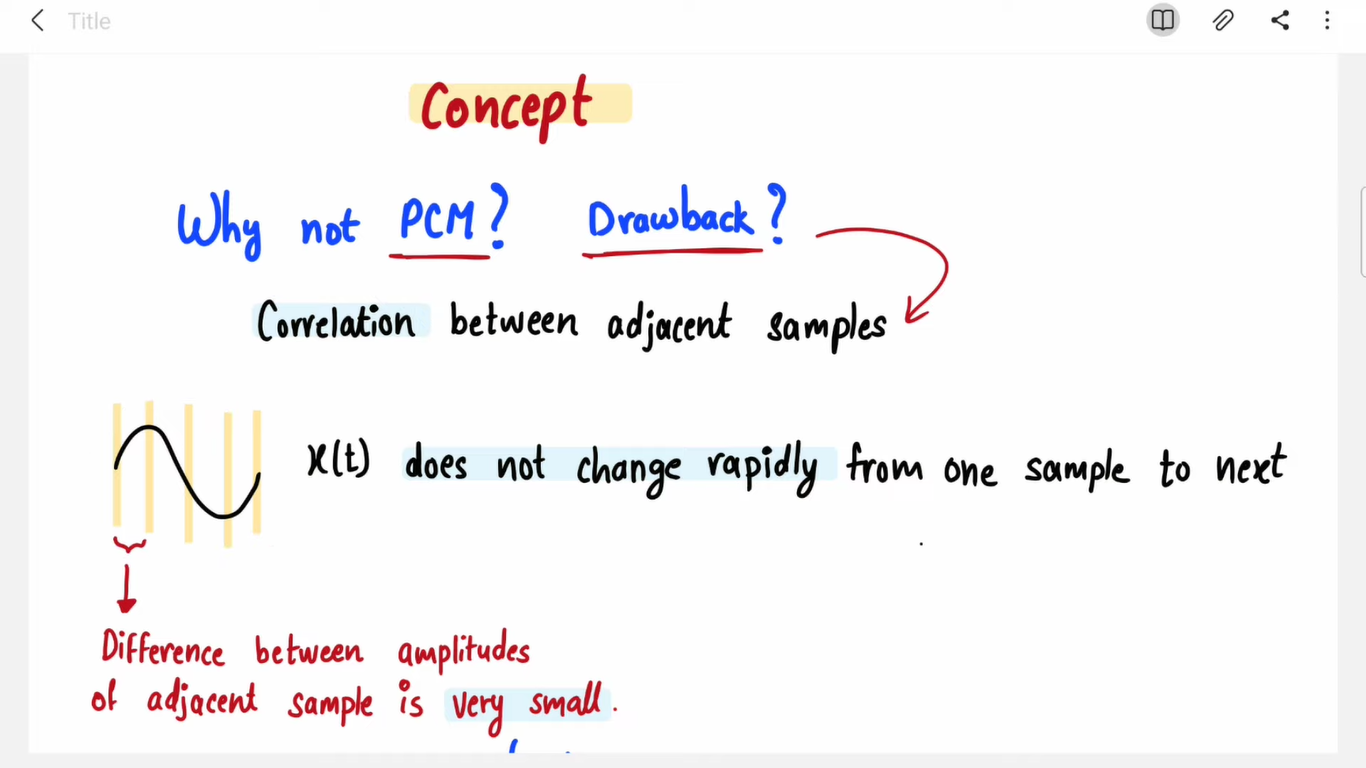 Title
Concept
Why not PCM? Drawback?
Correlation between adjacent samples
x(t) does not change rapidly from one sample to next
Difference between amplitudes
of adjacent sample is very small.